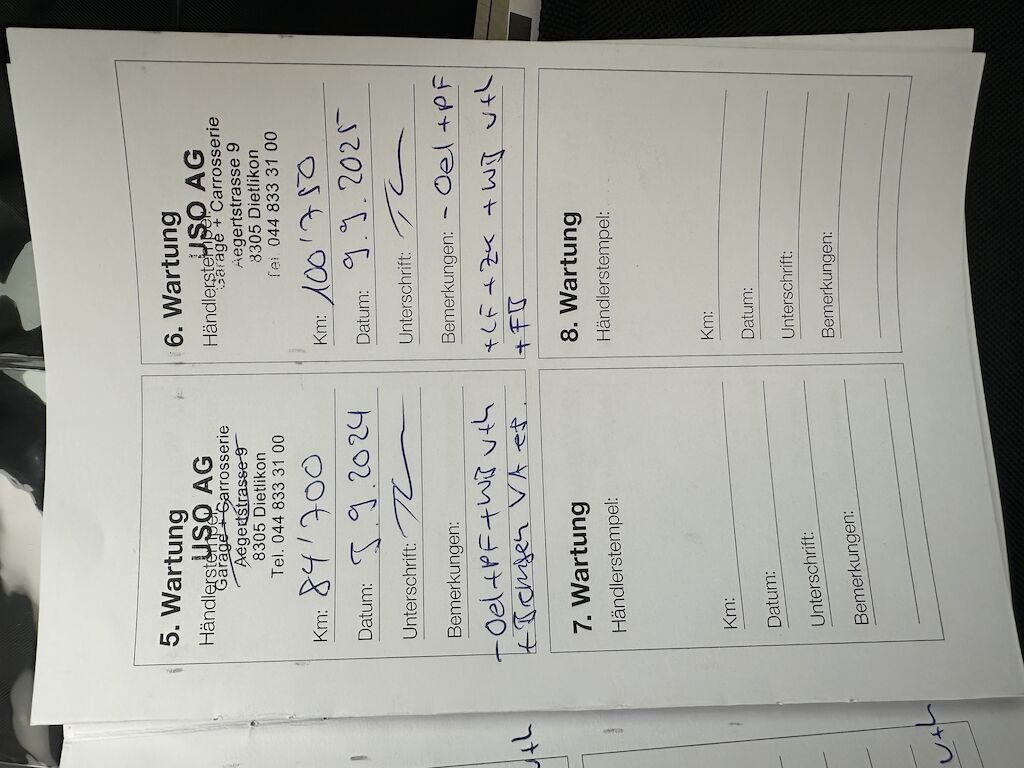 5. Wartung
Händlerstempel:
USO AG
Garage + Carrosserie
Aegertstrasse 9
8305 Dietlikon
Tel. 044 833 31 00
Km: 84'700
Datum: 5.9.2024
Unterschrift:
Bemerkungen:
- Oel + PF + WB
VA
6. Wartung
Händlerstempel:
USO AG
Garage + Carrosserie
Aegertstrasse 9
8305 Dietlikon
Tel. 044 833 31 00
Km: 100'750
Datum: 9.9.2025
Unterschrift:
Bemerkungen: - Oel + PF
+ LF + ZK + WB
7. Wartung
Händlerstempel:
Km:
Datum:
Unterschrift:
Bemerkungen:
8. Wartung
Händlerstempel:
Km:
Datum:
Unterschrift:
Bemerkungen: